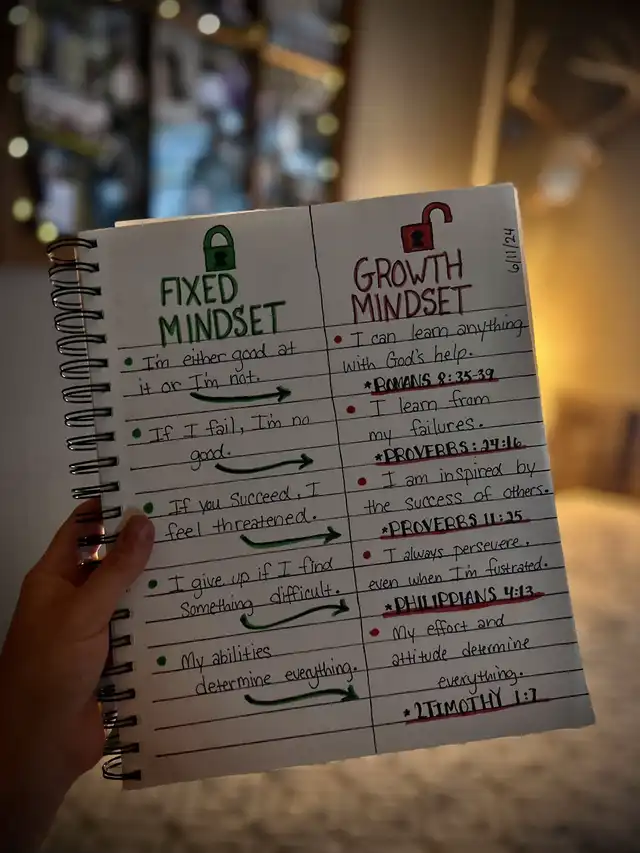 FIXED
MINDSET
• I'm either good at
it or I'm not.
• If I fail, I'm no
good.
• If you succeed, I
feel threatened.
• I give up if I find
something difficult.
• My abilities
determine everything.
6/11/24
GROWTH
MINDSET
• I can learn anything
with God's help.
*ROMANS 8:35-39
• I learn from
my failures.
*PROVERBS:24:16
• I am inspired by
the success of others.
*PROVERBS 11:25
• I always persevere,
even when I'm fustrated.
*PHILIPPIANS 4:13
• My effort and
attitude determine
everything.
*2TIMOTHY 1:7